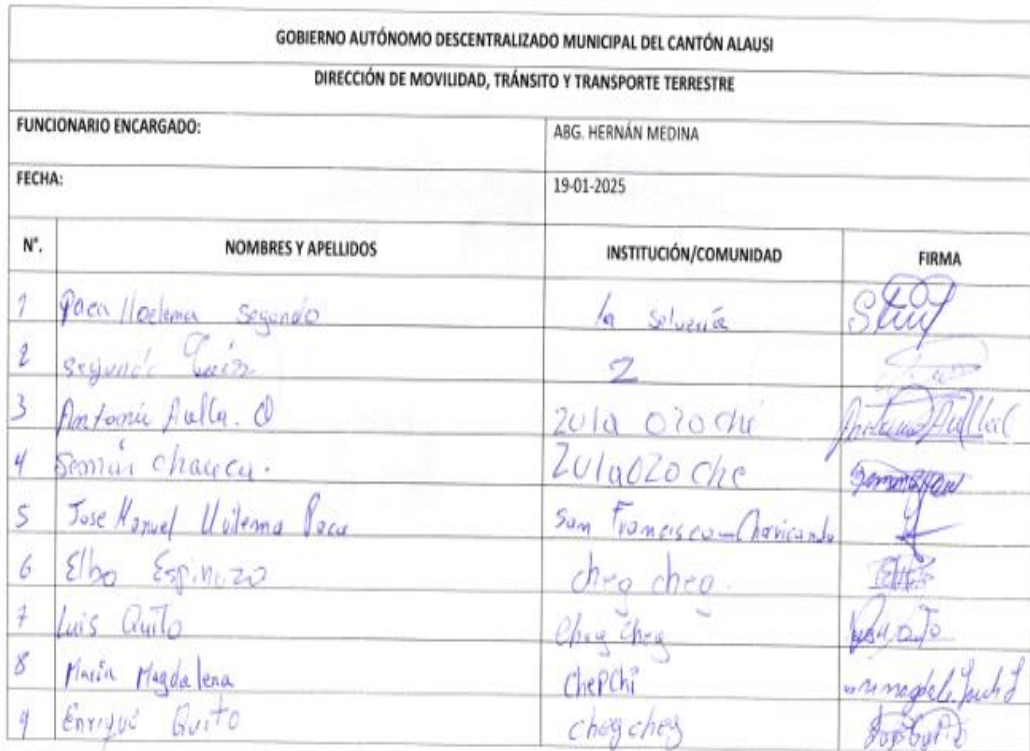 GOBIERNO AUTÓNOMO DESCENTRALIZADO MUNICIPAL DEL CANTÓN ALAUSI
DIRECCIÓN DE MOVILIDAD, TRÁNSITO Y TRANSPORTE TERRESTRE
FUNCIONARIO ENCARGADO: ABG. HERNÁN MEDINA
FECHA: 19-01-2025
N°. NOMBRES Y APELLIDOS INSTITUCIÓN/COMUNIDAD FIRMA
1 Paca Segundo la
2 Segundo
3 Aulla. O Zula Ozoche
4 chauca. Zula Ozoche
5 Jose Manuel Paca San Francisco
6 Elbo Espinozo cheg cheg.
7 Luis Quito Cheg Cheg
8 María Magdalena Chepchi
9 Enrique Quito chegcheg